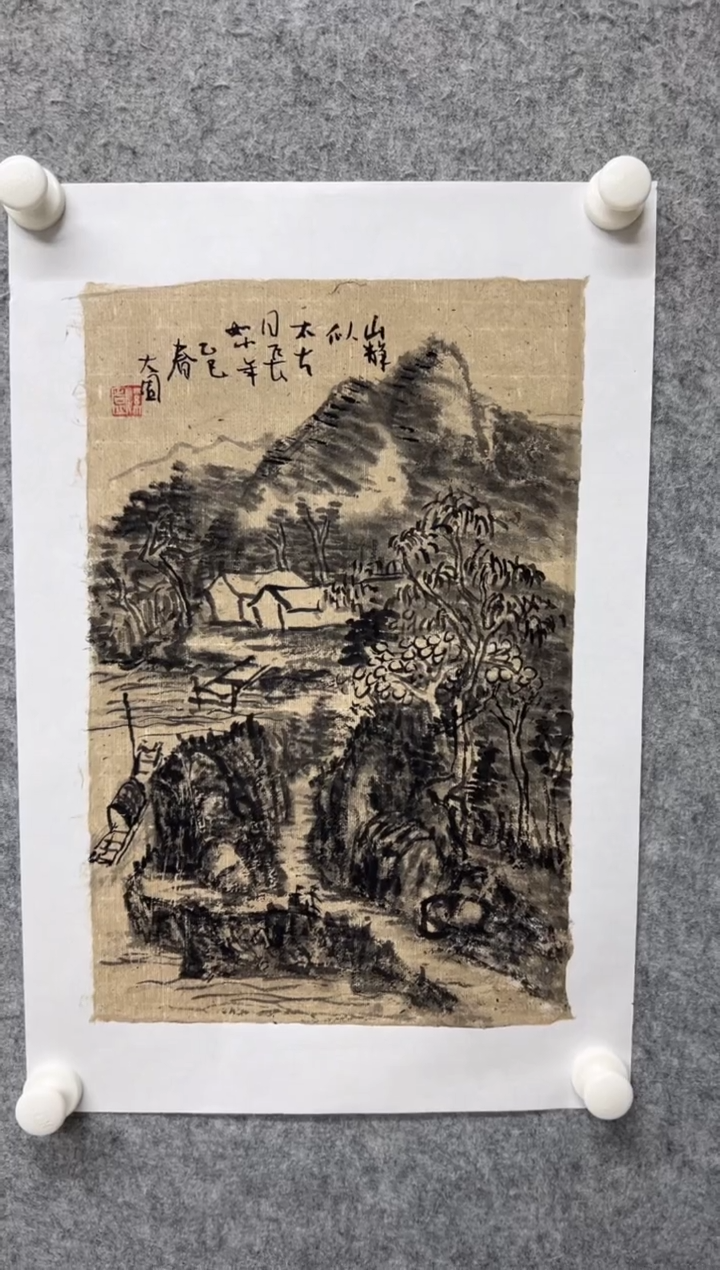 山静
似
太古
日長
如小年
乙巳
春
大